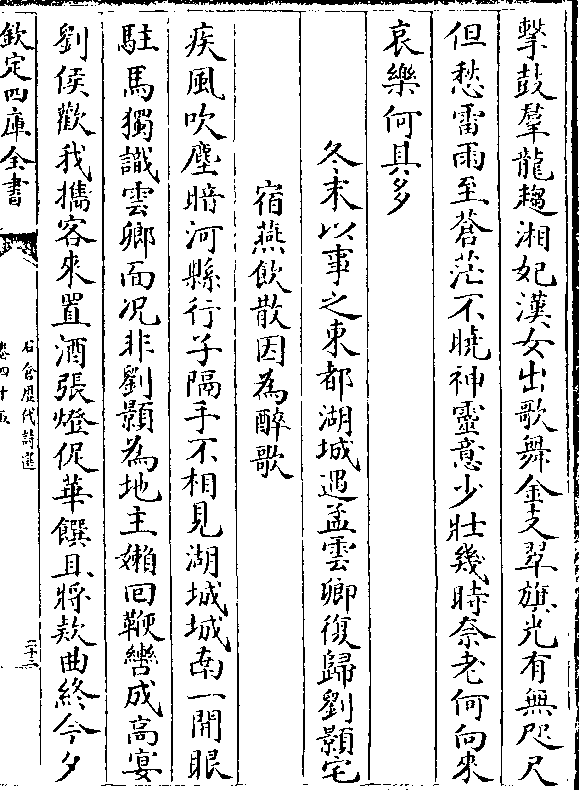 擊鼓羣龍趨湘妃漢女出歌舞金支翠旗光有無咫尺
但愁雷雨至蒼茫不曉神靈意少壯幾時奈老何向來
哀樂何其多
冬末以事之東都湖城遇孟雲卿復歸劉顥宅
宿燕飲散因為醉歌
疾風吹塵暗河縣行子隔手不相見湖城城南一開眼
駐馬獨識雲卿面况非劉顥為地主嬾回鞭轡成高宴
劉侯歡我攜客來置酒張燈促華饌且將款曲終今夕
欽定四庫全書
石倉歷代詩選
卷四十
二十二